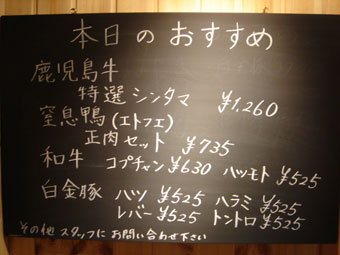 本日のおすすめ
鹿児島牛
特選シンタマ ¥1,260
窒息鴨(エトフェ)
正肉セット ¥735
和牛 コプチャン ¥630 ハツモト ¥525
白金豚 ハツ ¥525 ハラミ ¥525
レバー ¥525 トントロ ¥525
その他 スタッフに お問い合わせ下さい